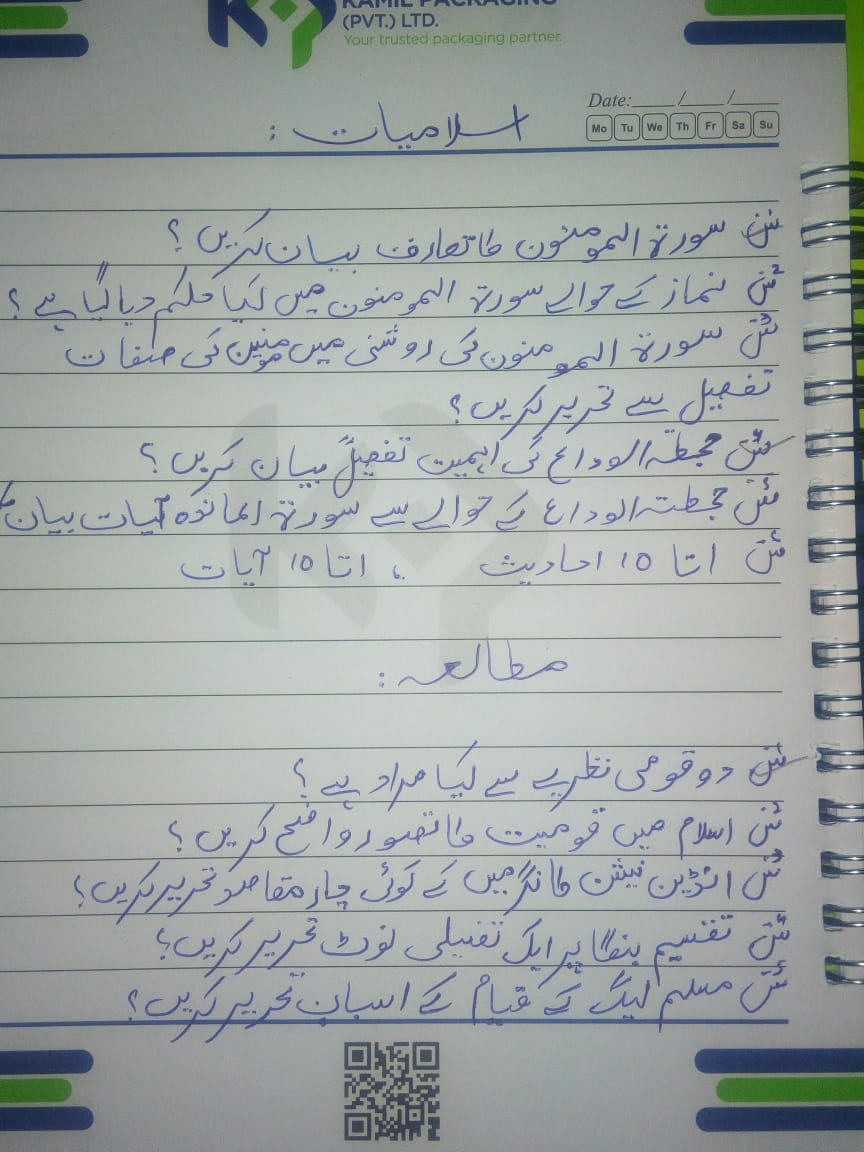 KAMIL PACKAGING
(PVT.) LTD.
Your trusted packaging partner.
Date:____/____/____
Mo Tu We Th Fr Sa Su
اسلامیات :
س سورۃ المومنون کا تعارف بیان کریں ؟
س نماز کے حوالے سورۃ المومنون میں کیا حکم دیا گیا ہے ؟
س سورۃ المومنون کی روشنی میں مومنین کی صفات
تفصیل سے تحریر کریں ؟
س حجطتہ الوداع کی اہمیت تفصیلاً بیان کریں ؟
س حجطتہ الوداع کے حوالے سے سورۃ المائدہ آیات بیان
س 1 تا 10 احادیث ، 1 تا 10 آیات
مطالعہ :
س دو قومی نظریے سے کیا مراد ہے ؟
س اسلام میں قومیت کا تصور واضح کریں ؟
س انڈین نیشن کانگرجیں کے کوئی چار مقاصد تحریر کریں ؟
س تقسیم بنگا پر ایک تفصیلی نوٹ تحریر کریں ؟
س مسلم لیگ کے قیام کے اسباب تحریر کریں ؟